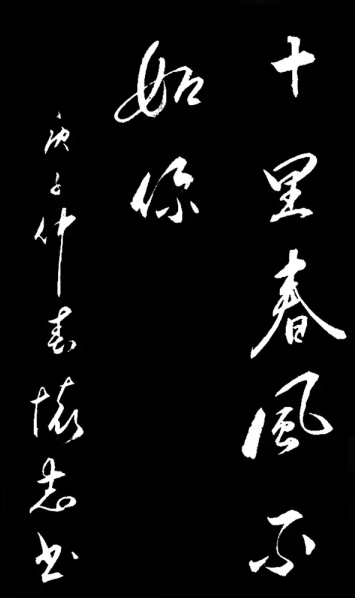 十里春風不
如你
庚子仲春懷志书